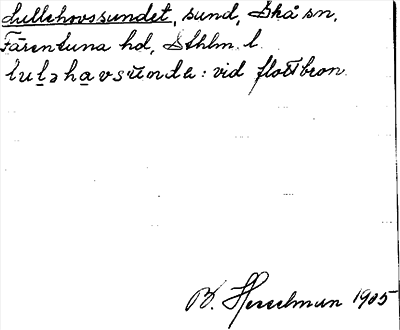 Lullehovssundet, sund, Skå sn,
Färentuna hd, Sthlm. l.
luləhavsúndə: vid flottbron.
B. Hesselman 1905